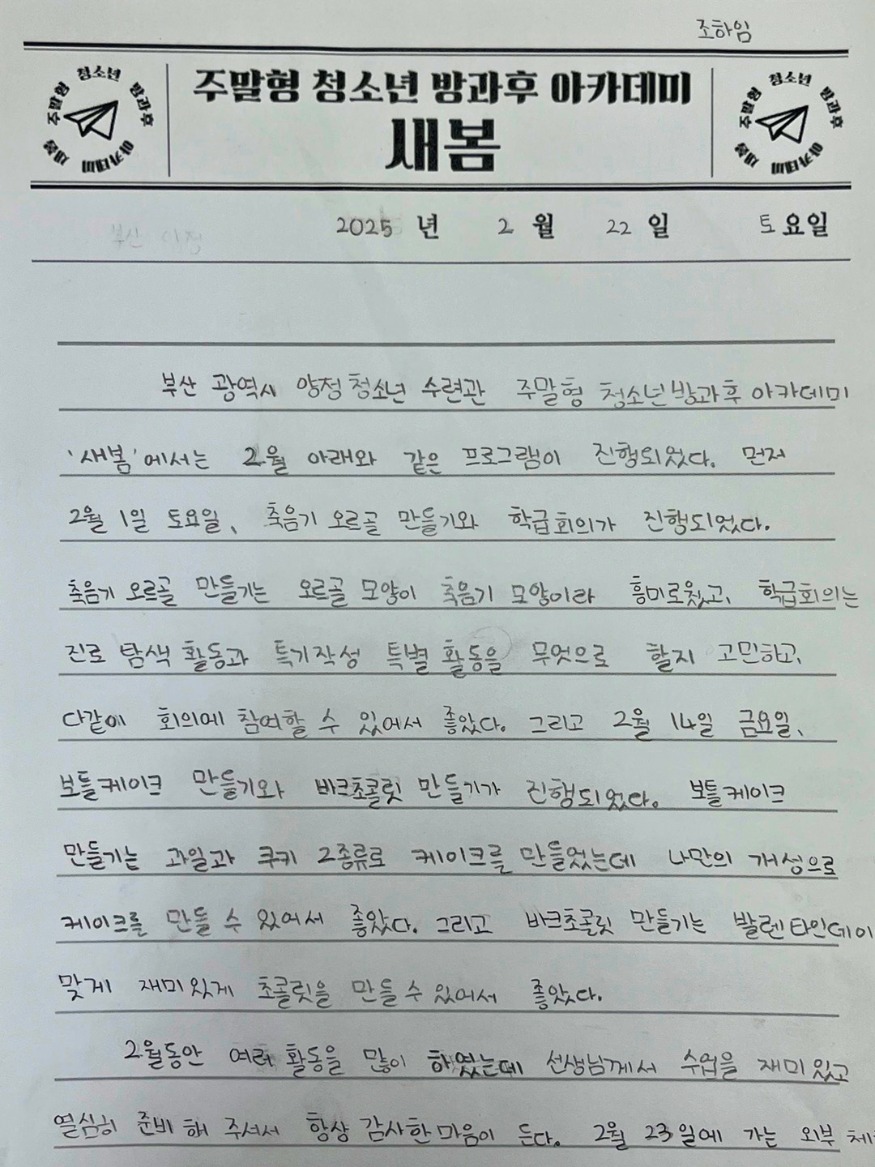 조하임
주말형 청소년 방과후 아카데미 새봄
주말형 청소년 방과후 아카데미
새봄
주말형 청소년 방과후 아카데미 새봄
2025 년 2 월 22 일 토요일
부산 광역시 양정 청소년 수련관 주말형 청소년방과후 아카데미
'새봄'에서는 2월 아래와 같은 프로그램이 진행되었다. 먼저
2월 1일 토요일, 축음기 오르골 만들기와 학급회의가 진행되었다.
축음기 오르골 만들기는 오르골 모양이 축음기 모양이라 흥미로웠고, 학급회의는
진로 탐색 활동과 특기작성 특별 활동을 무엇으로 할지 고민하고,
다같이 회의에 참여할 수 있어서 좋았다. 그리고 2월 14일 금요일,
보틀케이크 만들기와 바크초콜릿 만들기가 진행되었다. 보틀케이크
만들기는 과일과 쿠키 2종류로 케이크를 만들었는데 나만의 개성으로
케이크를 만들 수 있어서 좋았다. 그리고 바크초콜릿 만들기는 발렌타인데이
맞게 재미있게 초콜릿을 만들 수 있어서 좋았다.
2월동안 여러 활동을 많이 하였는데 선생님께서 수업을 재미있고
열심히 준비 해 주셔서 항상 감사한 마음이 든다. 2월 23일에 가는 외부